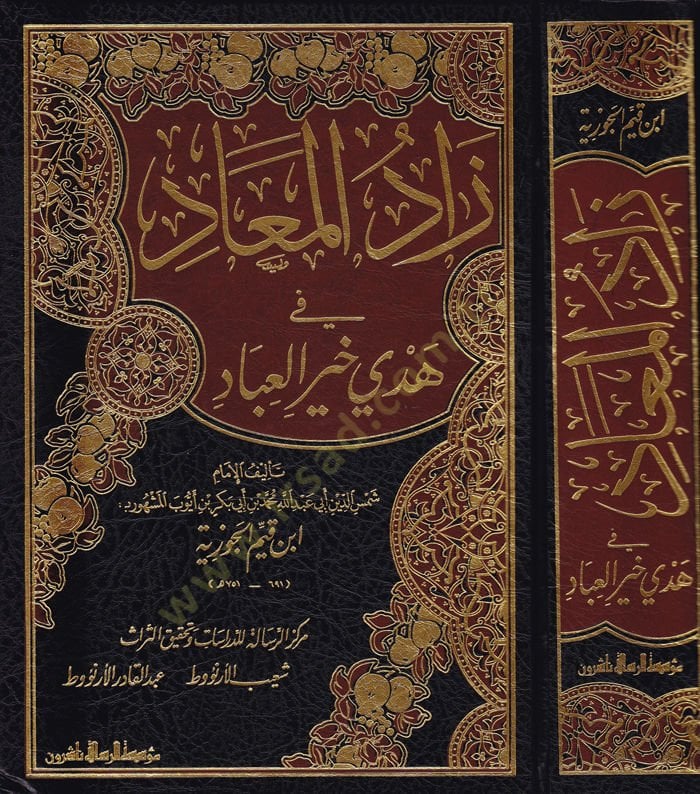 زَادُ المَعَادِ
وليد
في
هَدْيِ خَيرِ العِبَادِ
تأليف الإمام
شمس الدين أبي عبد الله محمد بن أبي بكر بن أيوب المشهور بـ:
ابن قيم الجوزية
(٦٩١ - ٧٥١ هـ)
مركز الرسالة للدراسات وتحقيق التراث
شعيب الأرنؤوط عبد القادر الأرنؤوط
مؤسسة الرسالة ناشرون
ابن قيم الجوزية
زَادُ المَعَادِ
في
هَدْيِ خَيرِ العِبَادِ
مؤسسة الرسالة ناشرون